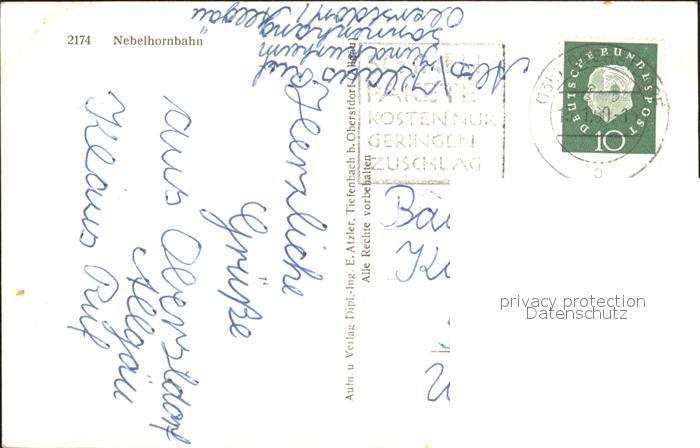 2174 Nebelhornbahn
Herzliche
Grüße
aus Oberstdorf
Allgäu
Klaus Ruf
Abs. Klaus Ruf
Sonnenhang
Oberstdorf / Allgäu
Aufn u Verlag Dipl.-Ing. E. Atzler, Tiefenbach b. Oberstdorf-Allgäu
Alle Rechte vorbehalten
PAKETE
KOSTEN NUR
GERINGEN
ZUSCHLAG
DEUTSCHE BUNDESPOST
10
privacy protection
Datenschutz